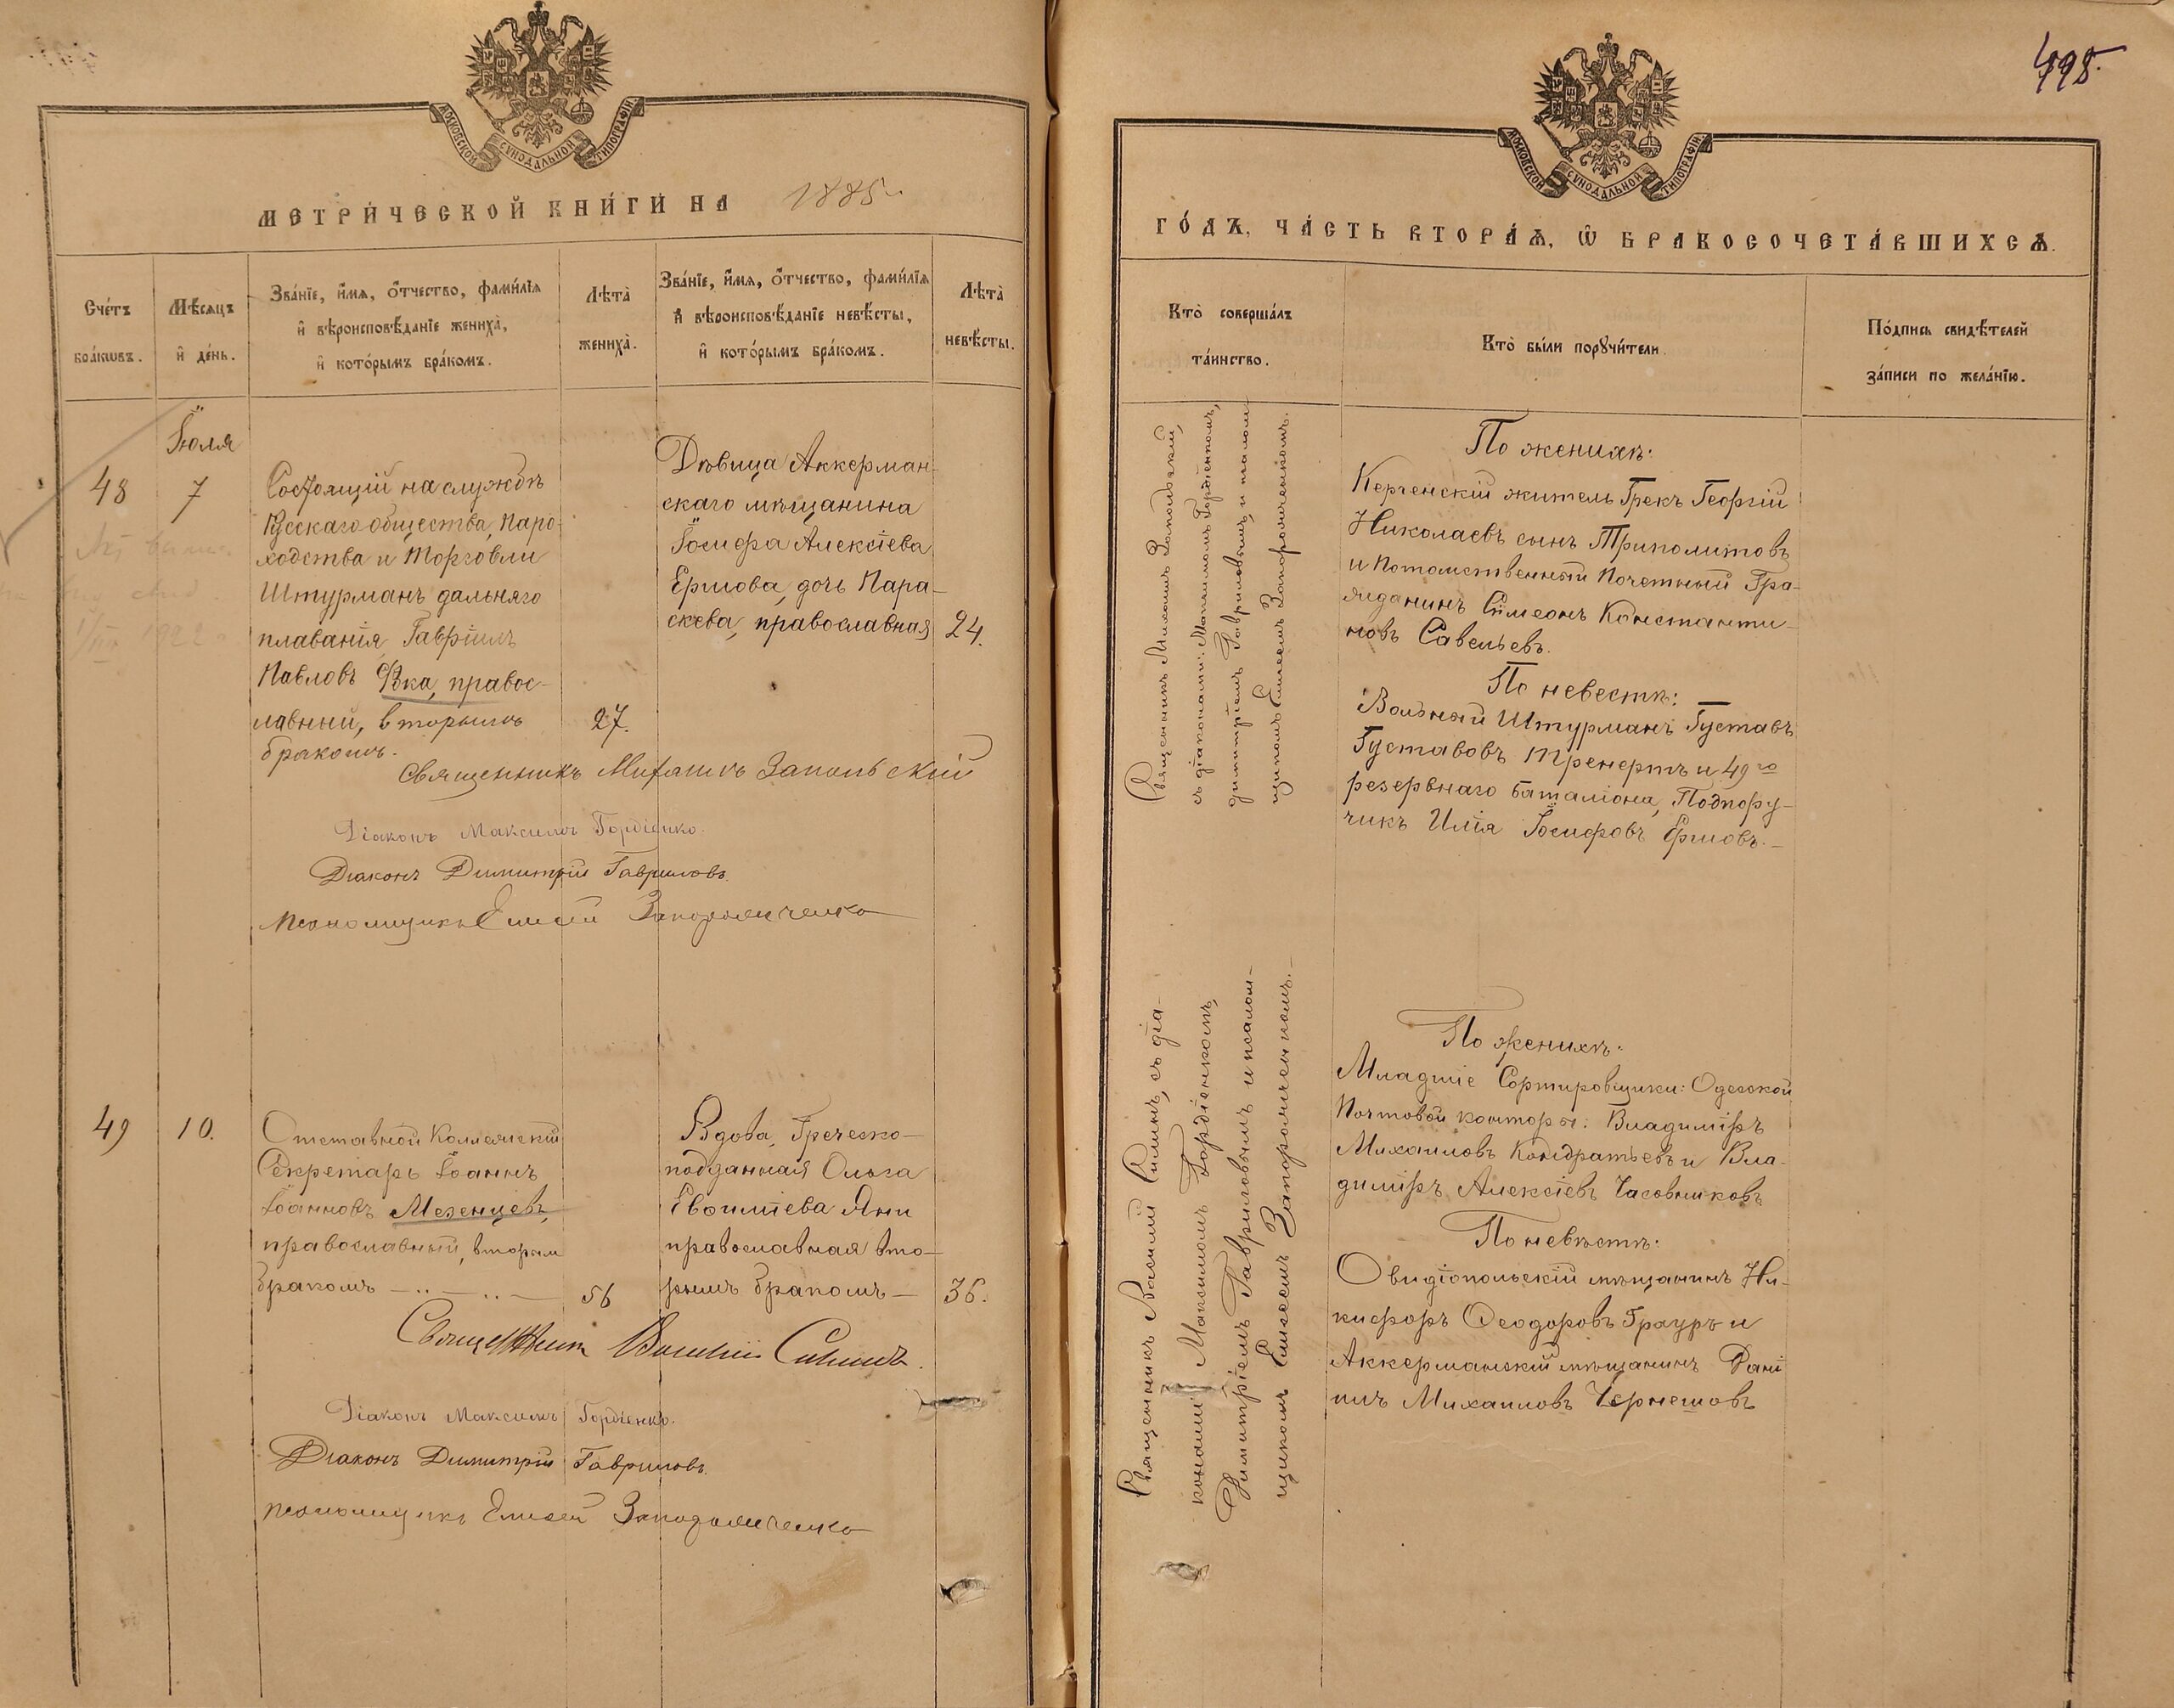 498.
МОСКОВСКОЙ СУНОДАЛЬНОЙ ТИПОГРАФІИ
МЕТРИ́ЧЕСКОЙ КНИ́ГИ НА 1885
Сче́тъ бра́кωвъ.
Мѣ́сяцъ и҆ де́нь.
Зва́нїе, и҆́мѧ, ѻ҆́тчество, фами́лїѧ
и҆ вѣроисповѣ́данїе жениха̀,
и҆ кото́рымъ бра́комъ.
Лѣта̀ жениха̀.
Зва́нїе, и҆́мѧ, ѻ҆́тчество, фами́лїѧ
и҆ вѣроисповѣ́данїе невѣ́сты,
и҆ кото́рымъ бра́комъ.
Лѣта̀ невѣ́сты.
Іюля
48
7
Состоящій на службѣ
Русскаго общества Паро-
ходства и Торговли
Штурманъ дальняго
плаванія, Гавріилъ
Павловъ Фка, правос-
лавный, вторымъ
бракомъ.
27.
Дѣвица Аккерман-
скаго мѣщанина
Іосифа Алексіева
Ершова, дочь Пара-
скева, православная
24.
Священникъ Михаилъ Запольскій
Діаконъ Максимъ Гордіенко.
Діаконъ Димитрій Гавриловъ.
Псаломщикъ Елисей Запорожченко
49
10.
Отставной Коллежскій
Секретарь Іоаннъ
Іоанновъ Мезенцевъ,
православный, вторым
бракомъ
56
Вдова, Греческо-
подданная Ольга
Евѳиміева Яни
православная вто-
рымъ бракомъ
36.
Священникъ Василій Силинъ.
Діаконъ Максимъ Гордіенко.
Діаконъ Димитрій Гавриловъ.
псаломщикъ Елисей Запорожченко
МОСКОВСКОЙ СУНОДАЛЬНОЙ ТИПОГРАФІИ
ГО́ДЪ, ЧА́СТЬ ВТОРА́Ѧ, Ѽ БРАКОСОЧЕТА́ВШИХСѦ.
Кто̀ соверша́лъ
та́инство.
Кто̀ бы́ли порꙋчи́тели.
По́дпись свидѣ́телей
за́писи по жела́нїю.
Священникъ Михаилъ Запольскій,
съ діаконами: Максимомъ Гордіенкомъ,
Димитріемъ Гавриловымъ и псалом-
щикомъ Елисеемъ Запорожченкомъ.
По женихѣ:
Керченскій житель Грекъ Георгій
Николаевъ сынъ Триполитовъ
и Потомственный Почетный Гра-
жданинъ Симеонъ Константи-
новъ Савельевъ.
По невестѣ:
Вольный Штурманъ Густавъ
Густавовъ Тренертъ и 49го
резервнаго баталіона, Подпору-
чикъ Илія Іосифовъ Ершовъ.
Священникъ Василій Силинъ, съ діа-
конами: Максимомъ Гордіенкомъ,
Димитріемъ Гавриловымъ и псалом-
щикомъ Елисеемъ Запорожченкомъ.
По женихѣ:
Младшіе Сортировщики: Одесской
Почтовой конторы: Владиміръ
Михаиловъ Кондратьевъ и Вла-
диміръ Алексіевъ Часовниковъ
По невѣстѣ:
Овидіопольскій мѣщанинъ Ни-
кифоръ Ѳеодоровъ Грауръ и
Аккерманскій мѣщанинъ Дані
илъ Михаиловъ Чернешовъ